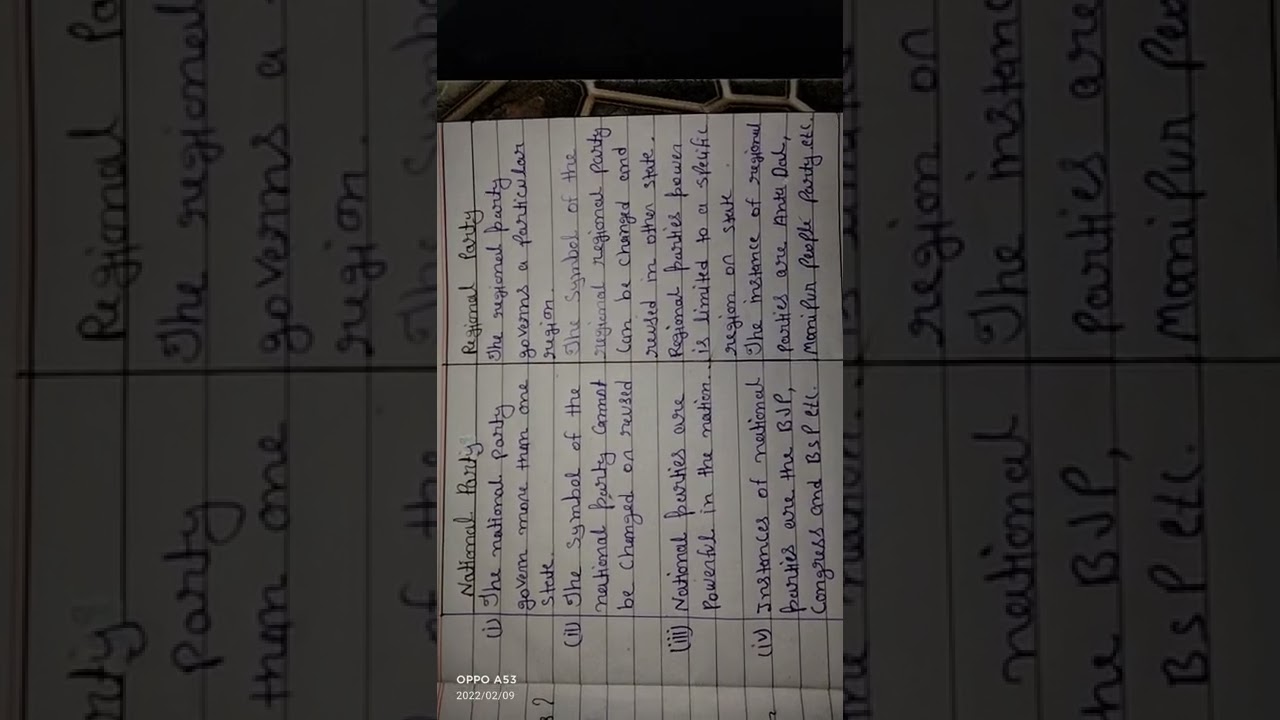 National Party
Regional Party
(i) The national Party
govern more than one
State.
The regional party
governs a particular
region.
(ii) The Symbol of the
national party Cannot
be changed or reused
The Symbol of the
regional regional party
Can be changed and
reused in other state.
(iii) National parties are
Powerful in the nation.
Regional parties power
is limited to a specific
region or state.
(iv) Instances of national
parties are the BJP,
Congress and BSP etc.
The instance of regional
parties are Dal,
Manipur People Party etc.
OPPO A53
2022/02/09